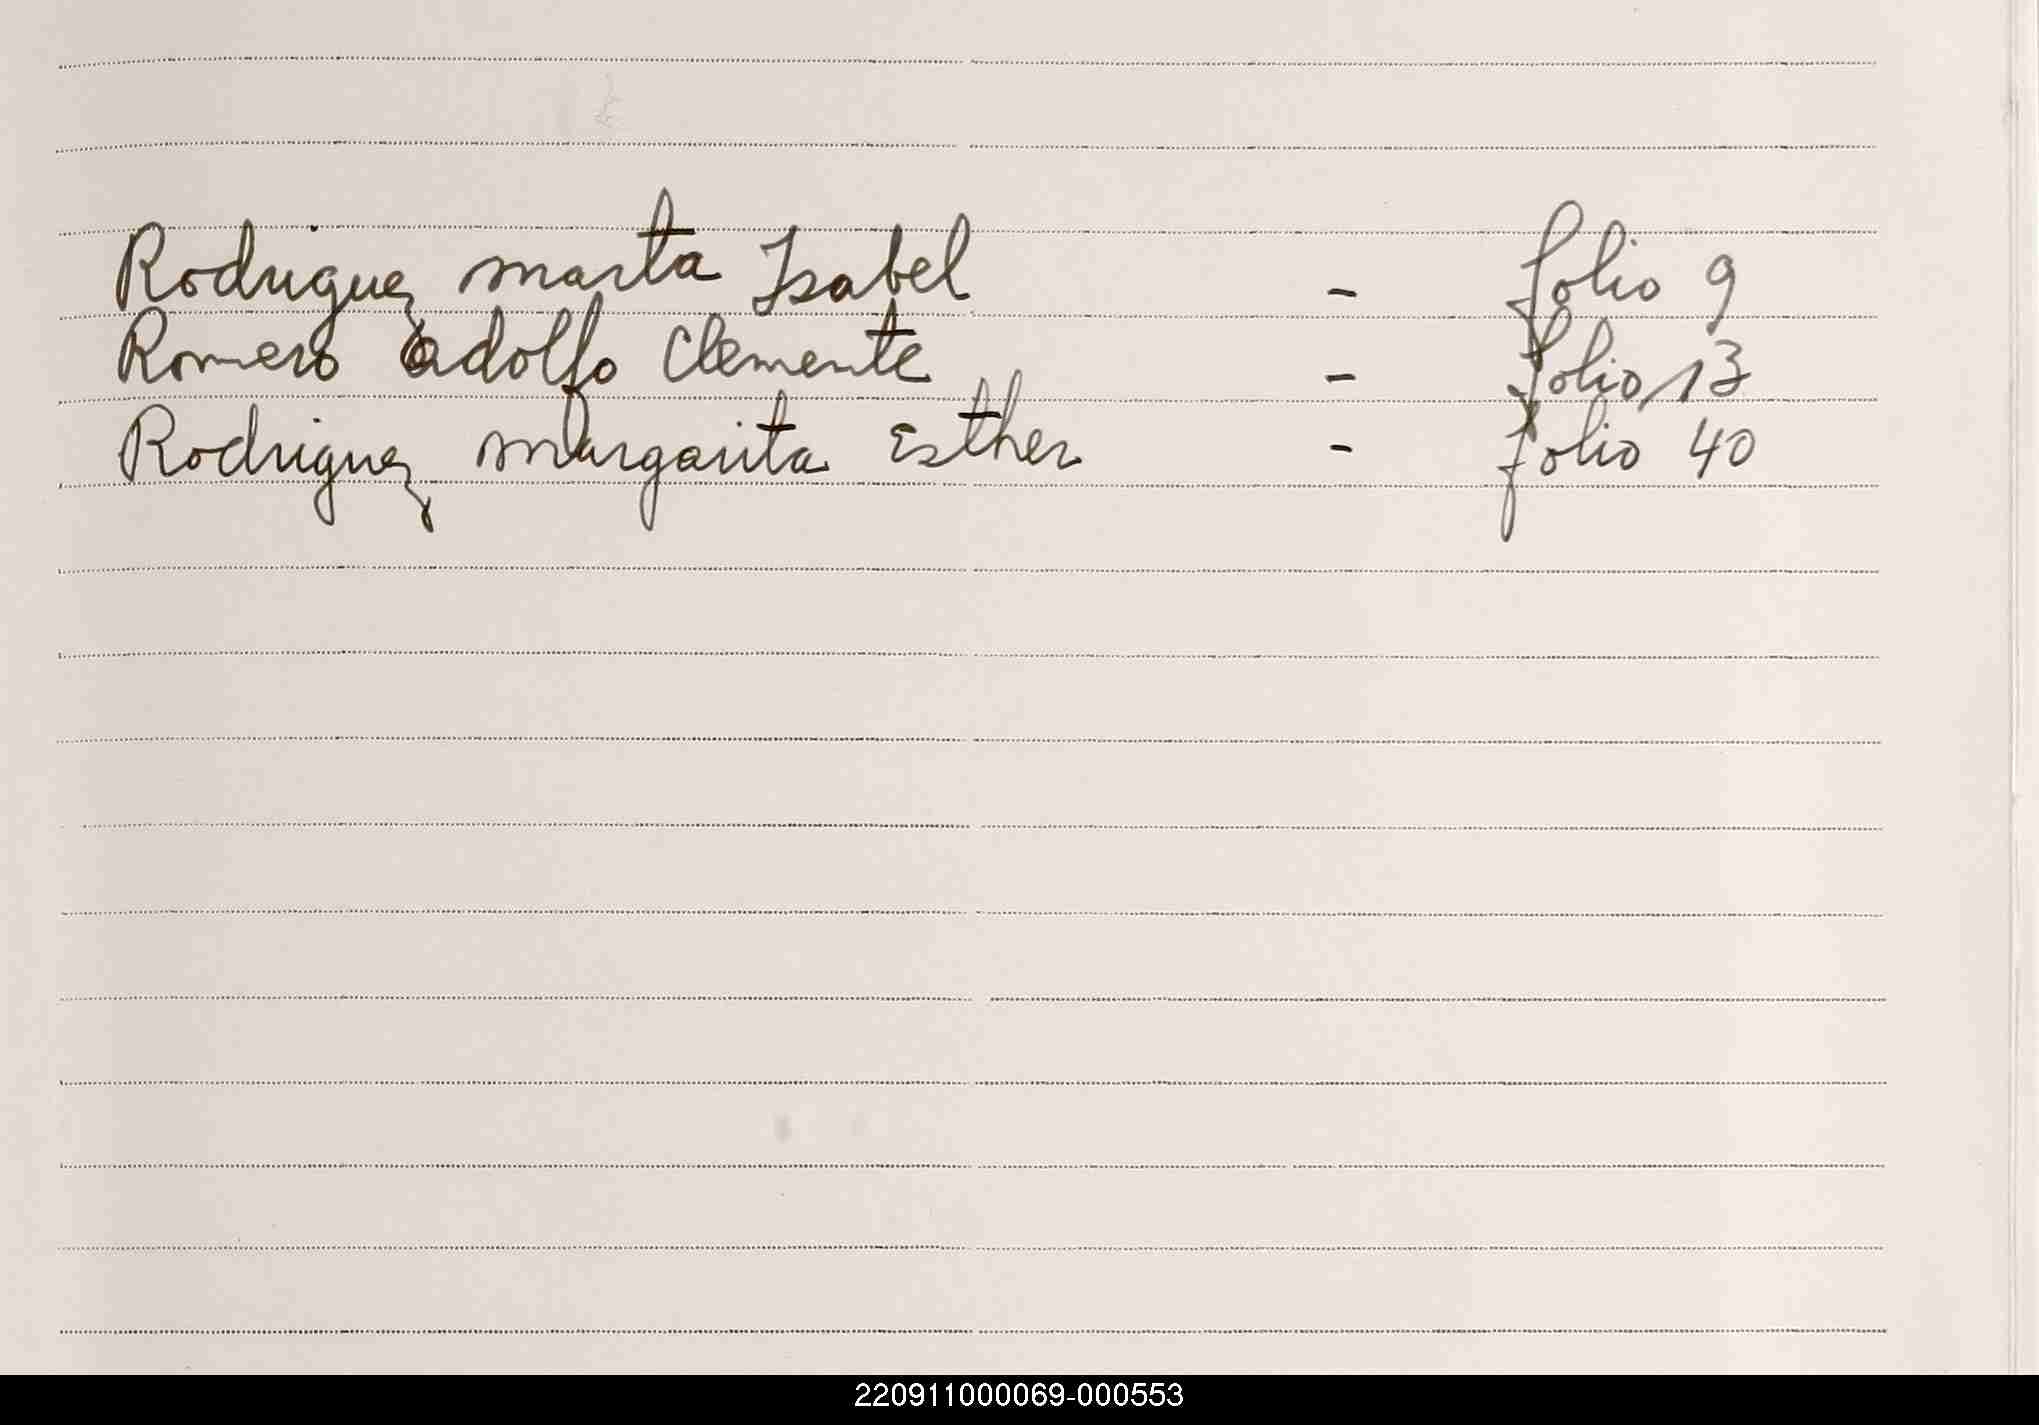 Rodriguez Marta Isabel - folio 9
Romero Adolfo Clemente - folio 13
Rodriguez Margarita Esther - folio 40
220911000069-000553